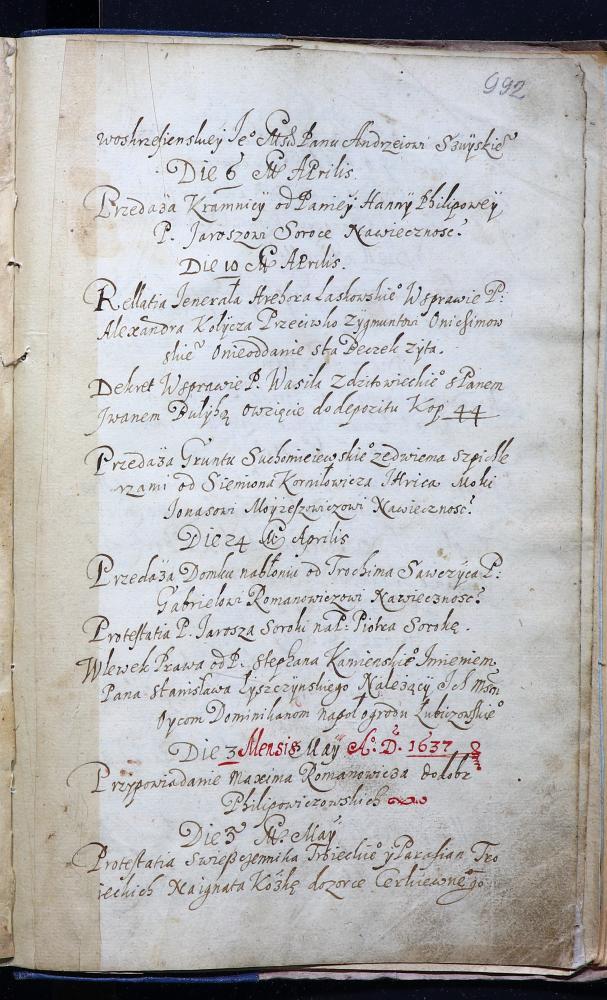 992
woskrzesienskiey Je° Mśći Panu Andrzeiowi Szuyskie°
Die 6 M Aprilis.
Przedaża Kramnicy od Paniey Hanny Philipowey
P. Jaroszowi Soroce Nawiecznosc.
Die 10 M Aprilis.
Rellatia Jenerała Hrehora Laskowskie° Wsprawie P:
Alexandra Kolycza Przeciwko Zygmuntowi Onichimow
skie° Onieoddanie sta Beczek zyta.
Dekret Wsprawie P. Wasila Zdzitowieckie° sPanem
Jwanem Bulyhą owzięcie dodepozitu Kop 44
Przedaża Gruntu Suchomieiewskie° zedwiema szpichle
rzami od Siemiona Korniłowicza JHrica Moki
Jonasowi Moyzeszowiczowi Nawiecznosc.
Die 24 M Aprilis
Przedaża Domku nabłoniu od Trochima Sawczyca P:
Gabrielowi Romanowiczowi Nawiecznosc.
Protestatia P. Jarosza Soroki na P: Piotra Sorokę.
Wlewek Prawa od P. Stephana Kamienskie° Jmieniem
Pana Stanisława Łyszczynskiego Należący Jch Mśćm
Oycom Dominikanom napoł ogrodu Łubiczowskie°
Die 3 Mensis May A° D. 1637
Przypowiadanie Maxima Romanowicza dodobr
Philipowiczowskich
Die 5 M. May
Protestatia Swieszczennika Troieckie° y Parafian Tro
ieckich Naignata Kożkę dozorce Cerkiewnego